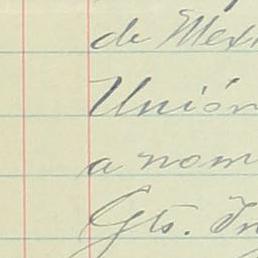 de Mex
Unión
a nom
Gts. In